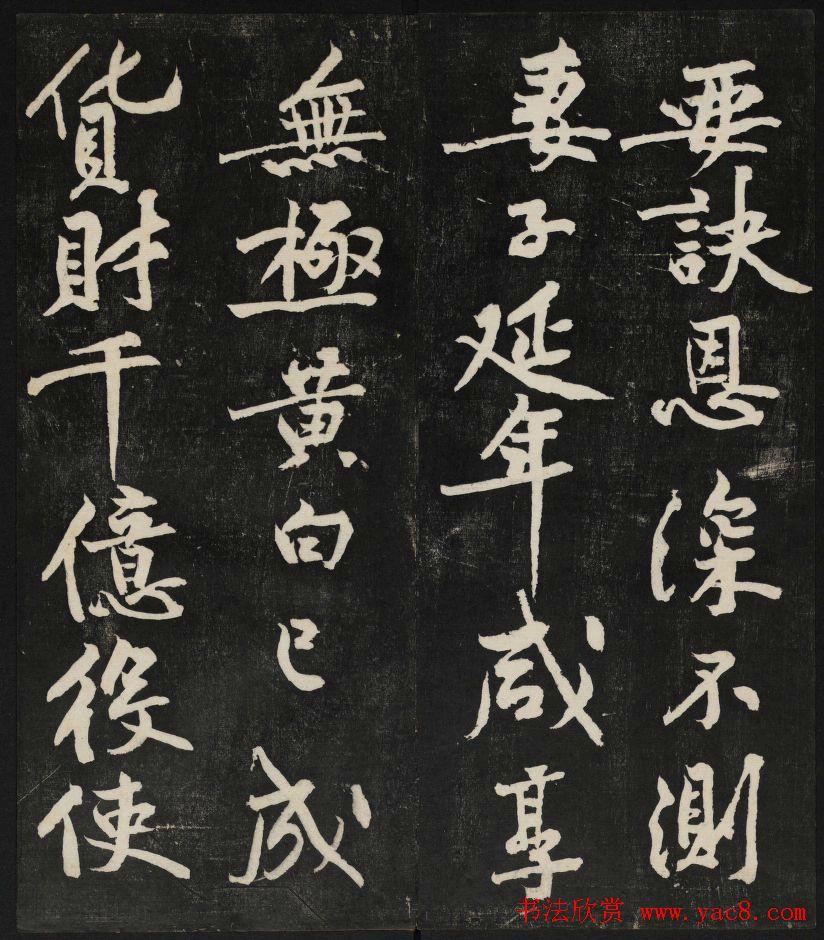 要訣恩深不測
妻子延年咸享
無極黄白已成
貨財千億役使
书法欣赏 www.yac8.com